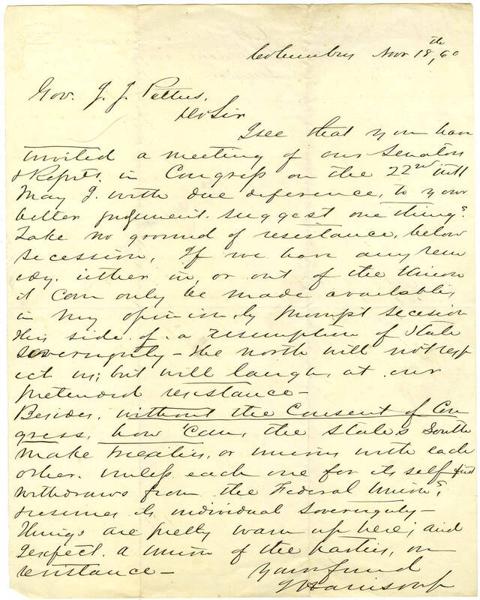 Columbus Nov 18th, 60
Gov. J. J. Pettus,
Dr Sir
I see that you have
invited a meeting of our Senators
& Repts. in Congress on the 22nd inst
May I with due diference, to your
better judgment suggest one thing?
Take no ground of resistance, below
Secession, If we have any rem
edy, either in, or out of the Union
it can only be made available,
in my opinion, by prompt secession
this side of a resumption of State
sovereignty – the north will not resp
ect us; but will laugh, at our
pretended resistance –
Besides, without the Consent of Con
gress, how can, the States South
make treaties, or unions with each
other. unless each one for its self first
withdraws from the Federal Union?
& resumes its individual Sovereignty –
Things are pretty warm up here; and
I expect. a union of the parties, on
resistance –
Your friend
J Harrison